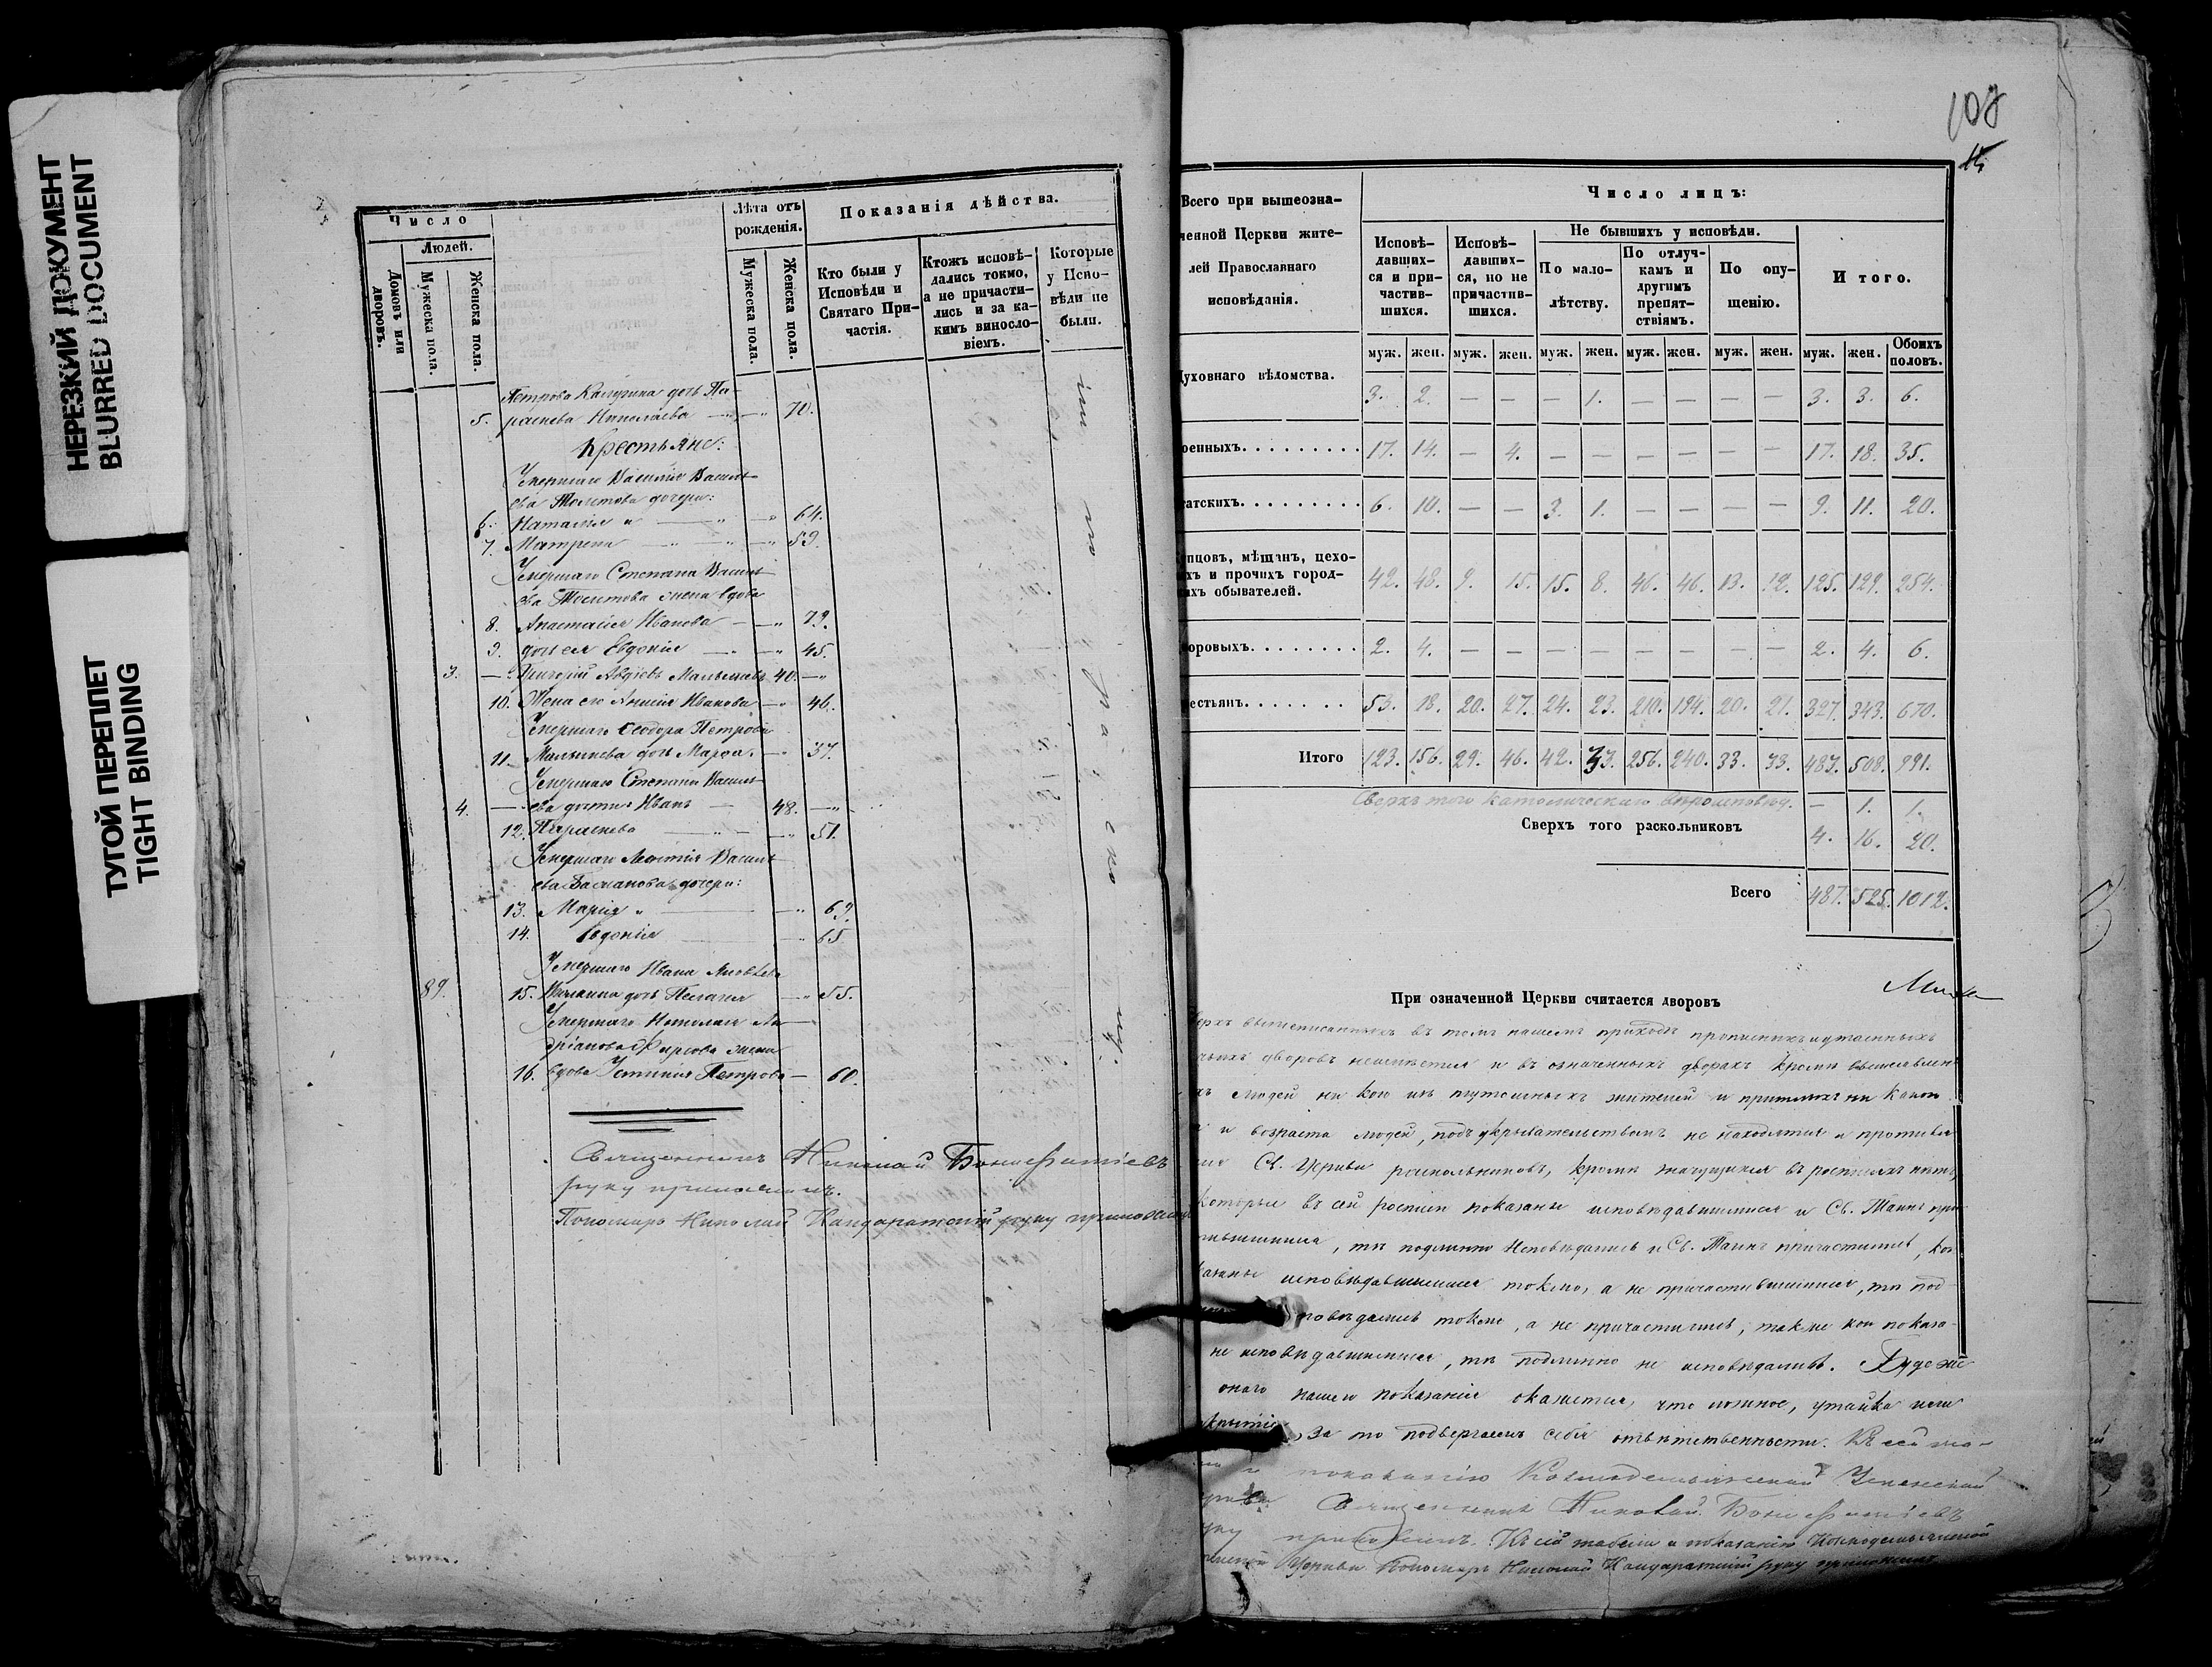 НЕРЕЗКИЙ ДОКУМЕНТ
BLURRED DOCUMENT
ТУГОЙ ПЕРЕПЛЕТ
TIGHT BINDING
Число
Людей.
Домовъ или дворовъ.
Мужеска пола.
Женска пола.
Лѣта отъ рожденія.
Мужеска пола.
Женска пола.
Показанія дѣйства.
Кто были у Исповѣди и Святаго Причастія.
Ктожъ исповѣдались токмо, а не причастились и за какимъ винословіемъ.
Которые у Исповѣди не были.
5. раскева Николаева — 70.
Крестьяне:
Умершаго Василія Василь
ева дочери:
6. Наталія — 64.
7. Матрена — 59.
Умершаго Степана Василь
ева жена вдова
8. Анастасія Иванова — 79.
9. дочь ея Евдокія — 45.
3. — Григорій Авдіевъ 40. —
10. Жена его Иванова — 46.
Умершаго Ѳеодора Петрова
11. дочь Марѳа — 37.
Умершаго Степана Василь
4. — ева дѣти: Иванъ — 48. —
12. Параскева — 51.
Умершаго Василь
ева дочери:
13. Марія — 69.
14. Евдокія — 65.
Умершаго Ивана Яковлева
89. 15. дочь Пелагія — 55.
Умершаго Николая
жена
16. вдова Устинія Петрова — 60.
Священникъ Николай Бонифатіевъ
руку приложилъ.
Пономарь Николай Кандаратскій руку приложилъ
108
Всего при вышеозна-
ченной Церкви жите-
лей Православнаго
исповѣданія.
Число лицъ:
Исповѣдавшихся и причастившихся.
Исповѣдавшихся, но не причастившихся.
Не бывшихъ у исповѣди.
По малолѣтству.
По отлучкамъ и другимъ препятствіямъ.
По опущенію.
Итого.
муж. жен. муж. жен. муж. жен. муж. жен. муж. жен. муж. жен. Обоихъ половъ.
Духовнаго вѣдомства. 3. 2. — — — 1. — — — — 3. 3. 6.
оенныхъ. 17. 14. — 4. — — — — — — 17. 18. 35.
атскихъ. 6. 10. — — 3. 1. — — — — 9. 11. 20.
пцовъ, мѣщанъ, цехо-
ихъ и прочихъ город-
ихъ обывателей. 42. 48. 9. 15. 15. 8. 46. 46. 13. 12. 125. 129. 254.
оровыхъ. 2. 4. — — — — — — — — 2. 4. 6.
естьянъ. 53. 78. 20. 27. 24. 23. 210. 194. 20. 21. 327. 343. 670.
Итого 123. 156. 29. 46. 42. 33. 256. 240. 33. 33. 483. 508. 991.
Сверхъ того католическаго вѣроисповѣд. — 1. 1.
Сверхъ того раскольниковъ 4. 16. 20.
Всего 487. 525. 1012.
При означенной Церкви считается дворовъ
ерхъ вышеписанныхъ въ томъ нашемъ приходѣ прописныхъ и утаенныхъ
дворовъ не имѣется и въ означенныхъ дворахъ кромѣ
хъ людей ни кого изъ жителей и
и возраста людей, подъ укрывательствомъ не находится и противы
Св. Церкви раскольниковъ, кромѣ значущихся въ росписяхъ нѣтъ,
которые въ сей росписи показаны исповѣдавшимися и Св. Таинъ при
, тѣ подлинно исповѣдались и Св. Таинъ причастились, кои
казаны исповѣдавшимися токмо, а не причастившимися, тѣ под
повѣдались токмо, а не причастились, также кои показа-
не исповѣдавшимися, тѣ подлинно не исповѣдались. Буде же
онаго нашего показанія окажется, что ложное, утайка или
крытіе, за то подвергаемъ себя отвѣтственности. Къ сей та-
показанію Козмодемьянской Успенской
Священникъ Николай Бонифатіевъ
приложилъ. Къ сей табели и показанію Козмодемьянской
Церкви Пономарь Николай Кандаратскій руку приложилъ